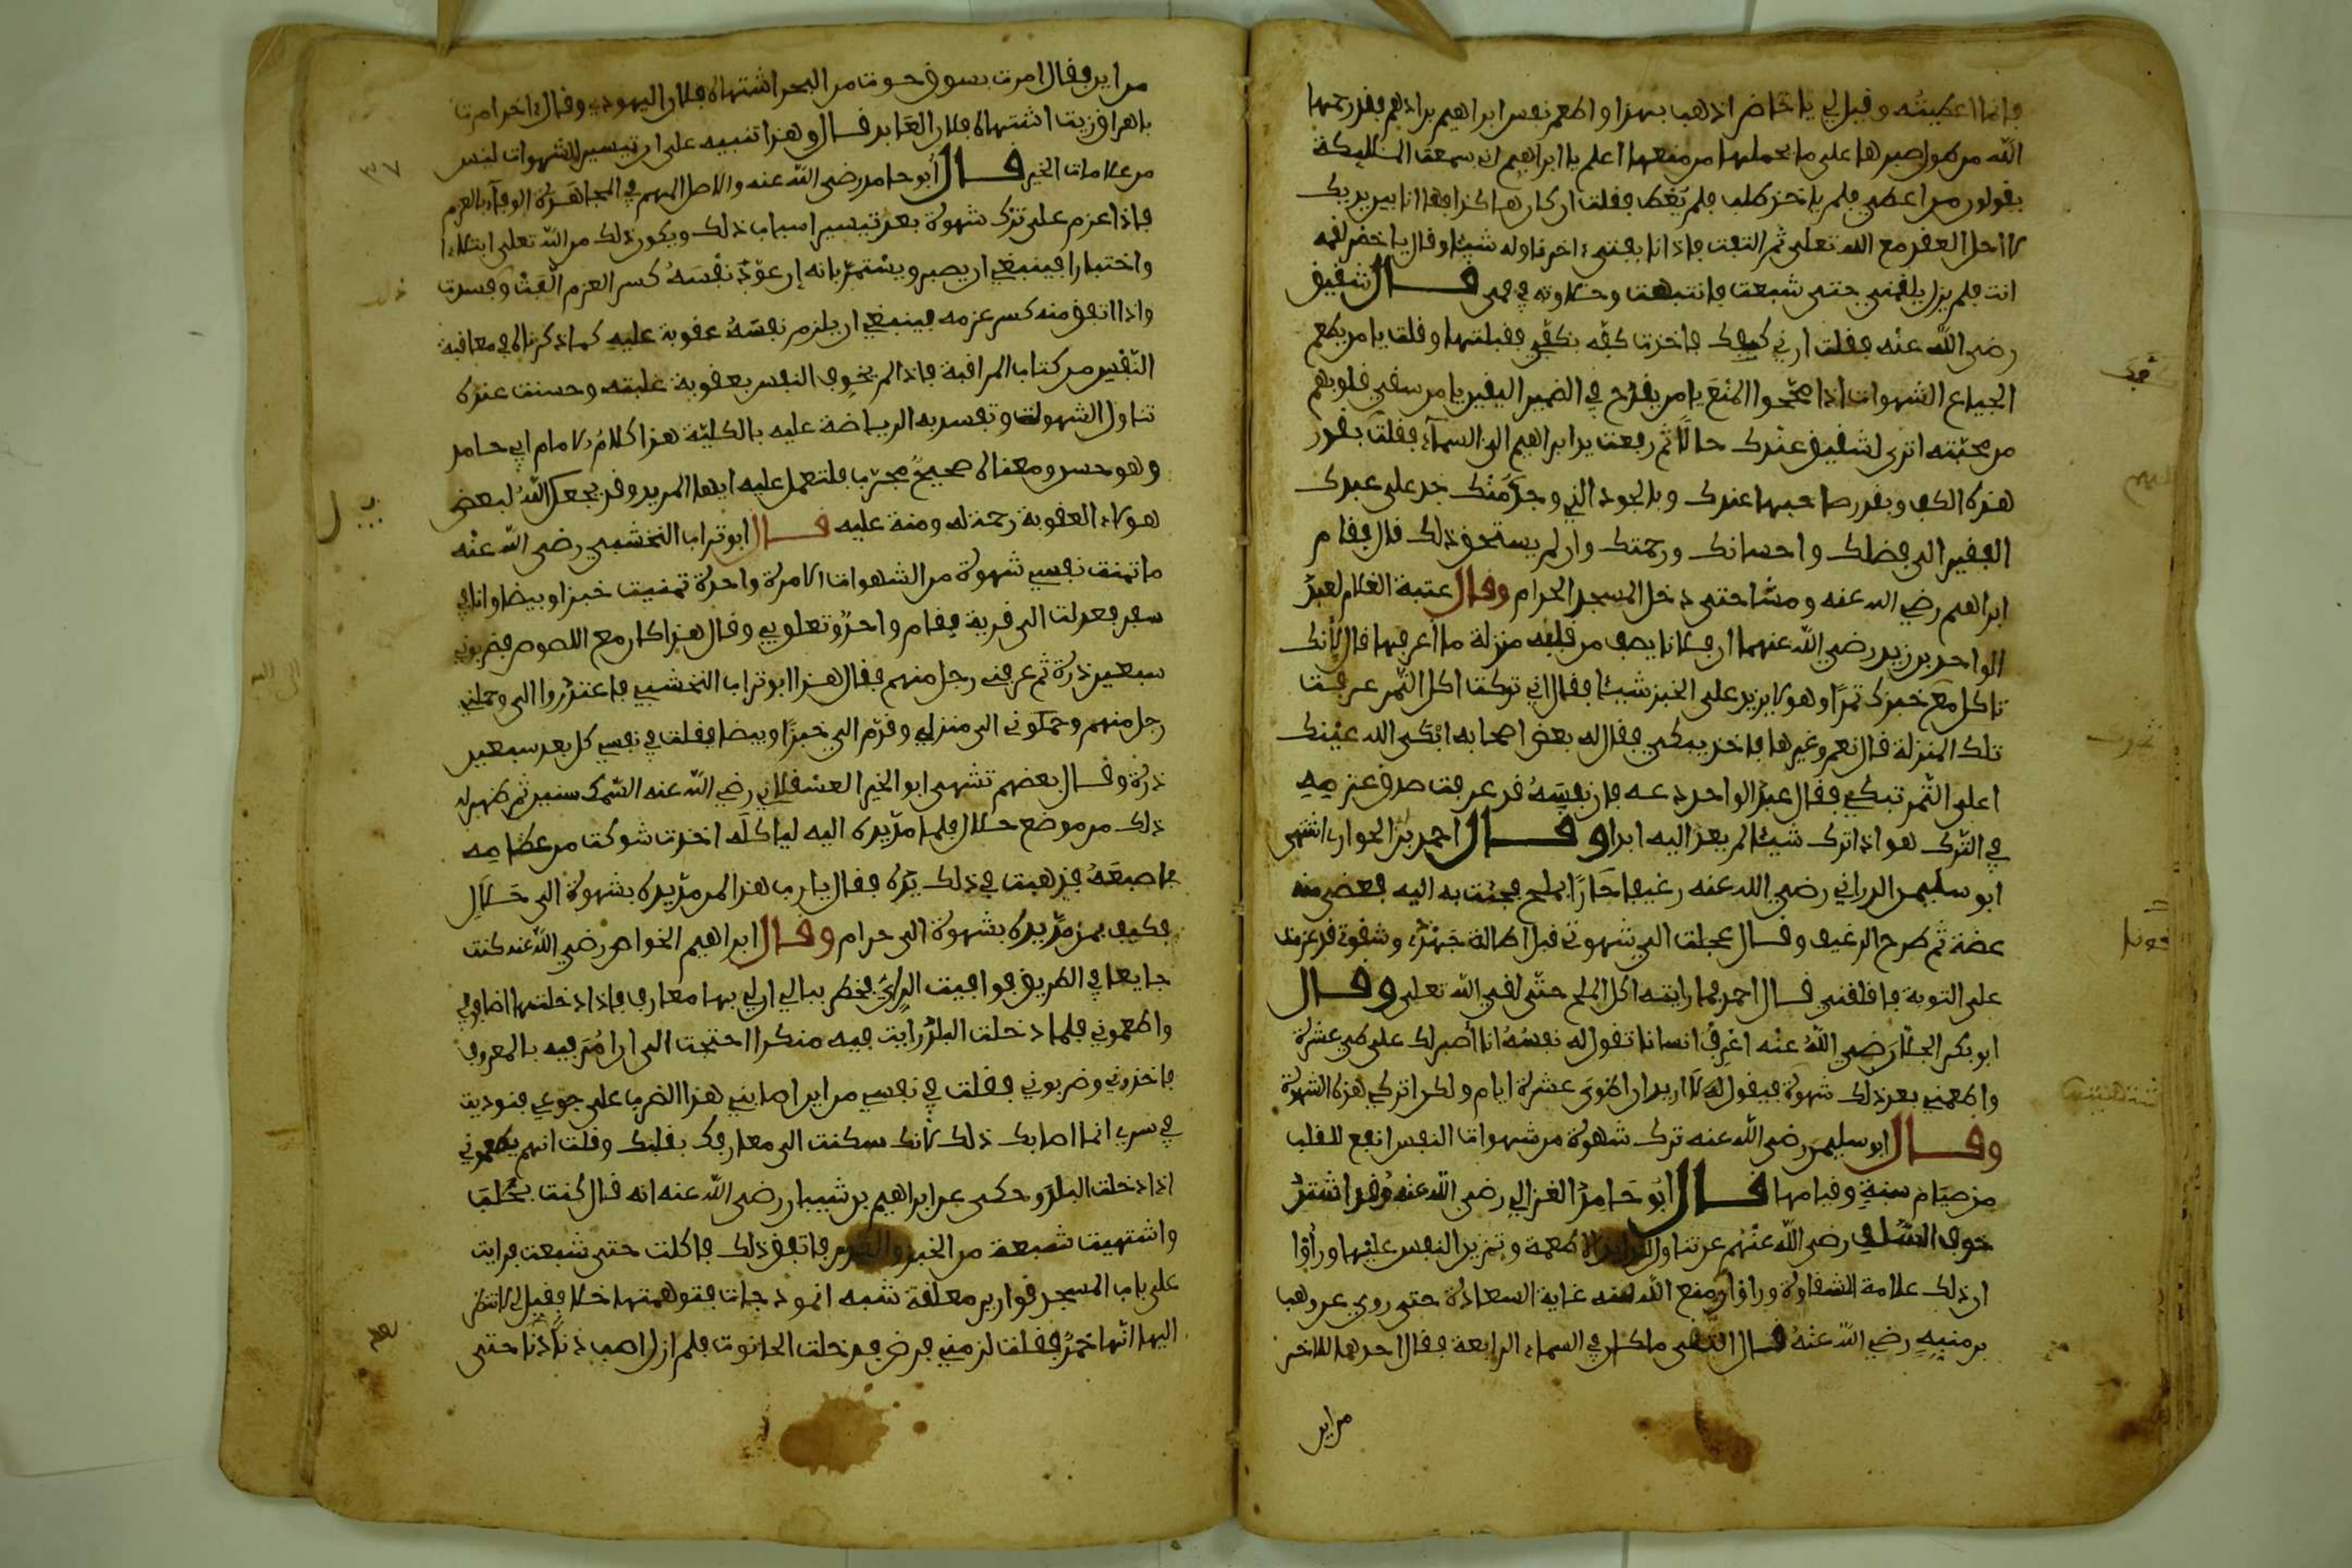 فانما اعطيته وقيل لي يا خاضر اذهب بهذا واطعم نفس ابراهيم بن ادهم فقد رحمها
الله من طول صبرها على ما يحملها من منعها اعلم يا ابراهيم اني سمعت الملئكة
يقولون من اعطي فلم ياخذ طلب فلم يعط فقلت ان كان هكذا فها انا بين يديك
لاحل العقد مع الله تعلى ثم التفت فاذا انا بفتىء اخر ناوله شيئا وقال يا خضر لقمه
انت فلم يزل يلقمني حتى شبعت فانتبهت وحلاوته في فمي قال شفيق
رضي الله عنه فقلت ارني كفك فاخذت كفه بكفي فقبلتها وقلت يا من يطعم
الجياع الشهوات اذا صححوا المنع يا من يقدح في الضمير اليقين يا من سقى قلوبهم
من محبته اترى لشفيق عندك حالا ثم رفعت يد ابراهيم الى السماء فقلت بقدر
هذه الكف وبقدر صاحبها عندك وبالجود الذي وجد منك جد على عبدك
الفقير الى فضلك واحسانك ورحمتك وان لم يستحق ذلك قال فقام
ابراهيم رضي الله عنه ومشا حتى دخل المسجد الحرام وقال عتبة الغلام لعبد
الواحد بن زيد رضي الله عنهما ان فلانا يصف من قلبه منزلة ما اعرفها قال لانك
تاكل مع خبزك تمرا وهو لا يزيد على الخبز شيئا فقال اني تركت اكل التمر عرفت
تلك المنزلة قال نعم وغيرها فاخذ يبكي فقال له بعض اصحابه ابكى الله عينك
اعلى التمر تبكي فقال عبد الواحد دعه فان نفسه قد عرفت صدق عزمه
في الترك هو اذا ترك شيئا لم يعد اليه ابدا وقال احمد بن الحواري اشتهى
ابو سليمن الداراني رضي الله عنه رغيفا حارا بملح فجئت به اليه فعض منه
عضة ثم طرح الرغيف وقال عجلت الي شهوتي قبل اطالة جهدي وشقوتي قد عزمت
على التوبة فاقلني قال احمد فما رايته اكل الملح حتى لقي الله تعلى وقال
ابو بكر الجلا رضي الله عنه اعرف انسانا تقول له نفسه انا اصبر لك على طي عشرة
واطعمني بعد ذلك شهوة فيقول لها لا اريد ان اطوى عشرة ايام ولكن اتركي هذه الشهوة
وقال ابو سليمن رضي الله عنه ترك شهوة من شهوات النفس انفع للقلب
من صيام سنة وقيامها قال ابو حامد الغزالي رضي الله عنه وقد اشتد
خوف السلف رضي الله عنهم عن تناول لذايذ الاطعمة وتمزيز النفس عليها وراوا
ان ذلك علامة الشقاوة وراوا منع الله منه غاية السعادة حتى روي عن وهب
بن منبه رضي الله عنه قال التقى ملكان في السماء الرابعة فقال احدهما للاخر
من اين
من اين فقال امرت بسوق حوت من البحر اشتهاه فلان اليهودي وقال الاخر امرت
باهراق زيت اشتهاه فلان العابد قال وهذا تنبيه على ان تيسير الشهوات ليس
من علامات الخير قال ابو حامد رضي الله عنه والاصل المهم في المجاهدة الوفاء بالعزم
فاذا عزم على ترك شهوة بعد تيسير اسباب ذلك ويكون ذلك من الله تعلى ابتلاء
واختبارا فينبغي ان يصبر ويستمر بانه ان عود نفسه كسر العزم الفت وفسدت
واذا اتفق منه كسر عزمه فينبغي ان يلزم نفسه عقوبة عليه كما ذكرناه في معاقبة
النفس من كتاب المراقبة فاذا لم يخوف النفس بعقوبة غلبته وحسنت عنده
تناول الشهوات وتفسد به الرياضة عليه بالكلية هذا كلام الامام ابي حامد
وهو حسن ومعناه صحيح مجرب فلتعمل عليه ايها المريد وقد يجعل الله لبعض
هولاء العقوبة رحمة له ومنة عليه قال ابو تراب النخشبي رضي الله عنه
ما تمنت نفسي شهوة من الشهوات الا مرة واحدة تمنيت خبزا وبيضا وانا في
سفر فعدلت الى قرية فقام واحد وتعلق بي وقال هذا كان مع اللصوص فضربوني
سبعين درة ثم عرفني رجل منهم فقال هذا ابو تراب النخشبي فاعتذروا الي وحملني
رجل منهم وحملوني الى منزله وقدم الي خبزا وبيضا فقلت في نفسي كل بعد سبعين
درة وقال بعضهم تشهى ابو الخير العسقلاني رضي الله عنه السمك سنين ثم ظهر له
ذلك من موضع حلال فلما مد يده اليه لياكله اخذت شوكة من عظامه
اصبعه فذهبت في ذلك يده فقال يا رب هذا لمن مد يده بشهوة الى حلال
فكيف بمن مد يده بشهوة الى حرام وقال ابراهيم الخواص رضي الله عنه كنت
جايعا في الطريق فوافيت الري فخطر ببالي ان لي بها معارف فاذا دخلتها اضافوني
واطعموني فلما دخلت البلد رايت فيه منكرا احتجت الى ان امر فيه بالمعروف
فاخذوني وضربوني فقلت في نفسي من اين اصابني هذا الضرب على جوعي فنوديت
في سري انما اصابك ذلك لانك سكنت الى معارفك بقلبك وقلت انهم يطعموني
اذا دخلت البلد وحكى عن ابراهيم بن شيبان رضي الله عنه انه قال كنت بحلب
واشتهيت شبعة من الخبز والعدس فاتفق ذلك فاكلت حتى شبعت فرايت
على باب المسجد قوارير معلقة شبه انموذجات فتوهمتها خلا فقيل لي لا تنظر
اليها انها خمر فقلت لزمني فرض فدخلت الحانوت فلم ازل اصب دنا دنا حتى